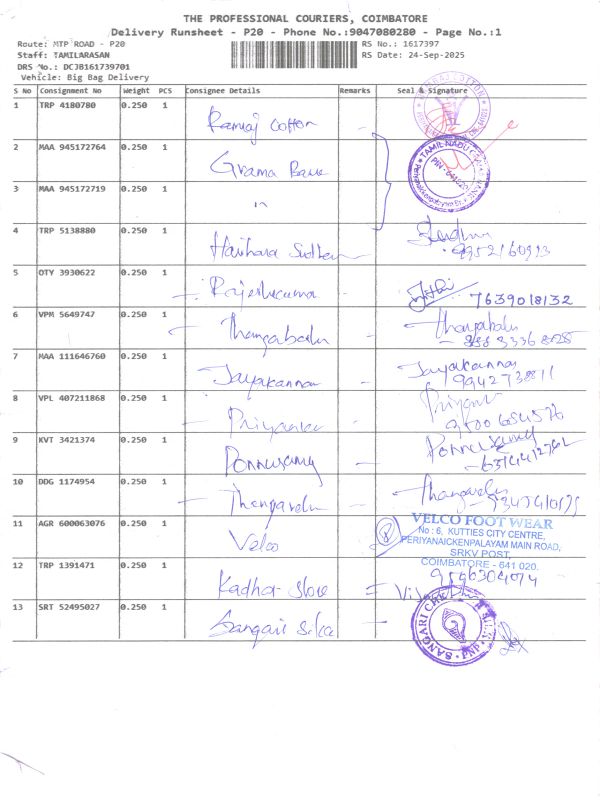 THE PROFESSIONAL COURIERS, COIMBATORE
Delivery Runsheet - P20 - Phone No.:9047080280 - Page No.:1
Route: MTP ROAD - P20
RS No.: 1617397
Staff: TAMILARASAN
RS Date: 24-Sep-2025
DRS No.: DCJB161739701
Vehicle: Big Bag Delivery
S No Consignment No Weight PCS Consignee Details Remarks Seal & Signature
1 TRP 4180780 0.250 1 Ramraj Cotton
2 MAA 945172764 0.250 1 Grama Bank
TAMIL NADU
PIN - 641020
3 MAA 945172719 0.250 1 "
4 TRP 5138880 0.250 1 Harihara
5 OTY 3930622 0.250 1 Rajeshkumar 7639018132
6 VPM 5649747 0.250 1 Thangabalu Thangabalu
7 MAA 111646760 0.250 1 Jayakannan Jayakannan
9942738811
8 VPL 407211868 0.250 1 Priyanka
9 KVT 3421374 0.250 1 Ponnusamy Ponnusamy
10 DDG 1174954 0.250 1 Thangavelu Thangavelu
11 AGR 600063076 0.250 1 Velco
VELCO FOOT WEAR
No : 6, KUTTIES CITY CENTRE,
PERIYANAICKENPALAYAM MAIN ROAD,
SRKV POST,
COIMBATORE - 641 020.
12 TRP 1391471 0.250 1 Kadhar Store
13 SRT 52495027 0.250 1 Sangari Silks
SANGARI
PNP